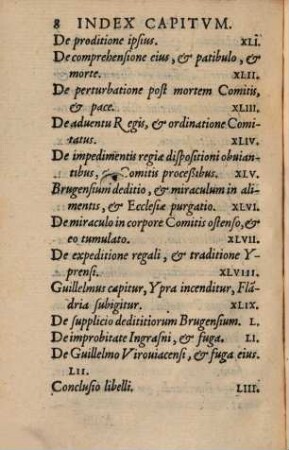 8 INDEX CAPITVM.
De proditione ipsius. XLI.
De comprehensione eius, & patibulo, &
morte. XLII.
De perturbatione post mortem Comitis,
& pace. XLIII.
De aduentu Regis, & ordinatione Comi-
tatus. XLIV.
De impedimentis regiæ dispositioni obuian-
tibus, & Comitis processibus. XLV.
Brugensium deditio, & miraculum in ali-
mentis, & Ecclesiæ purgatio. XLVI.
De miraculo in corpore Comitis ostenso, &
eo tumulato. XLVII.
De expeditione regali, & traditione Y-
prensi. XLVIII.
Guillelmus capitur, Ypra incenditur, Flã-
dria subigitur. XLIX.
De supplicio dedititiorum Brugensium. L.
De improbitate Ingrasni, & fuga. LI.
De Guillelmo Virouiacensi, & fuga eius.
LII.
Conclusio libelli. LIII.